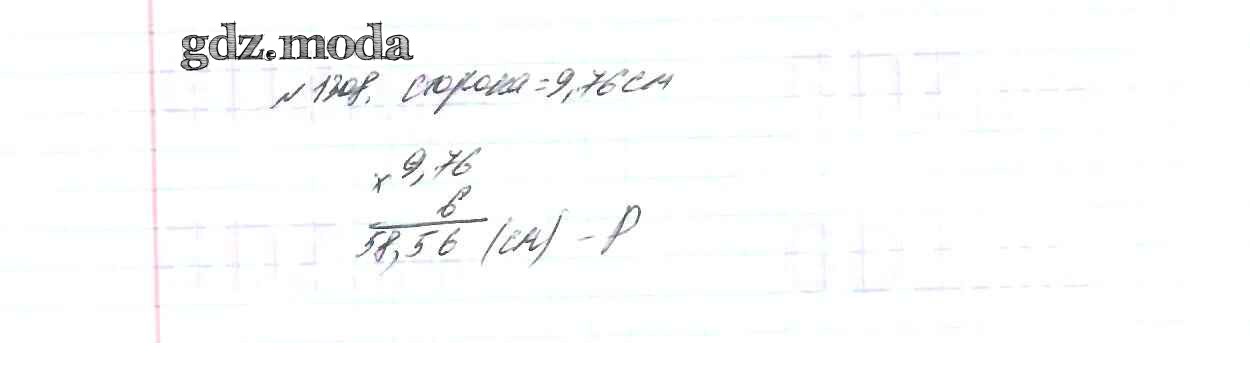 gdz.moda
№1308. сторона = 9,76 см
× 9,76
6
58,56 (см) - P